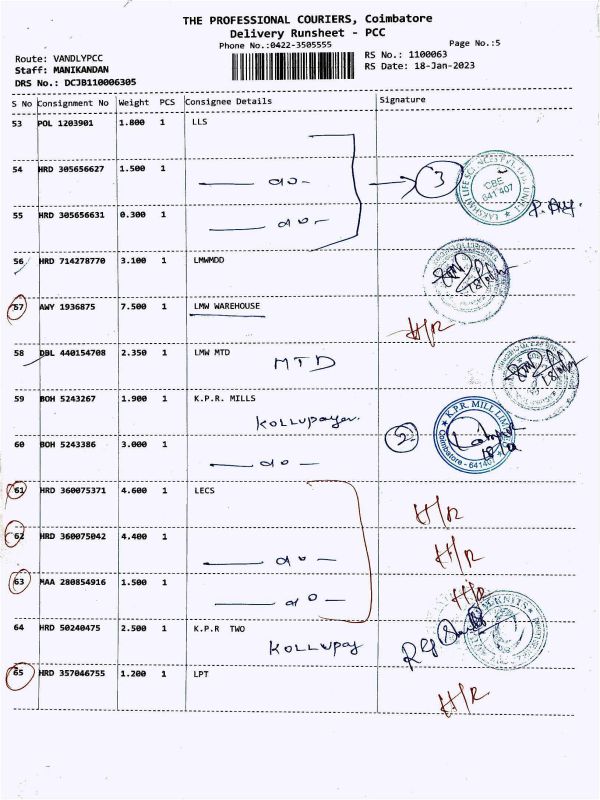 THE PROFESSIONAL COURIERS, Coimbatore
Delivery Runsheet - PCC
Phone No.:0422-3505555
Page No.:5
Route: VANDLYPCC
RS No.: 1100063
Staff: MANIKANDAN
RS Date: 18-Jan-2023
DRS No.: DCJB110006305
S No Consignment No Weight PCS Consignee Details Signature
53 POL 1203901 1.800 1 LLS
54 HRD 305656627 1.500 1 — do — 3
CBE 641 407
55 HRD 305656631 0.300 1 — do —
56 HRD 714278770 3.100 1 LMWMDD
57 AWY 1936875 7.500 1 LMW WAREHOUSE H/R
58 DBL 440154708 2.350 1 LMW MTD
MTD
59 BOH 5243267 1.900 1 K.P.R. MILLS
K.P.R. MILL LIMITED
Coimbatore - 641407
60 BOH 5243386 3.000 1 — do — 2
61 HRD 360075371 4.600 1 LECS H/R
62 HRD 360075042 4.400 1 — do — H/R
63 MAA 280854916 1.500 1 — do — H/R
64 HRD 50240475 2.500 1 K.P.R TWO
KOLLUPAY
65 HRD 357046755 1.200 1 LPT H/R